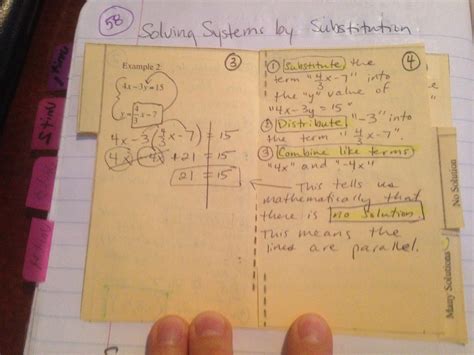 58
Solving Systems by Substitution
3
Example 2
4x-3y=15
y=4/3x-7
4x-3(4/3x-7)=15
4x-4x+21=15
21=15
4
① Substitute the
term "4/3x-7" into
the "y" value of
"4x-3y=15"
② Distribute "-3" into
the term "4/3x-7".
③ Combine like terms
"4x" and "-4x"!
This tells us
mathematically that
there is no solution
This means the
lined are parallel.
No Solution
Many Solutions